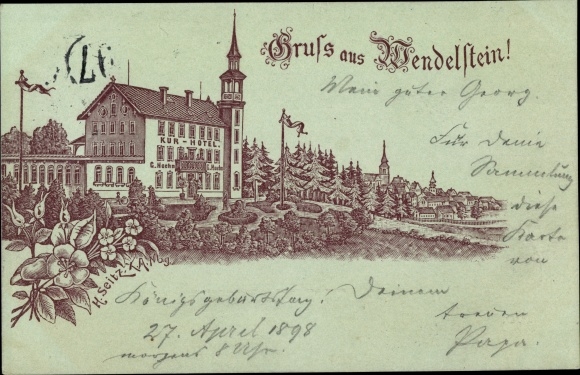 Gruss aus Wendelstein!
Mein guter Georg.
Für deine
Sammlung
diese
Karte
von
KUR-HOTEL.
H. Seitz X.A. Mg.
Königsgeburtstag! Deinem
27. April 1898
treuen
morgens 8 Uhr.
Papa.